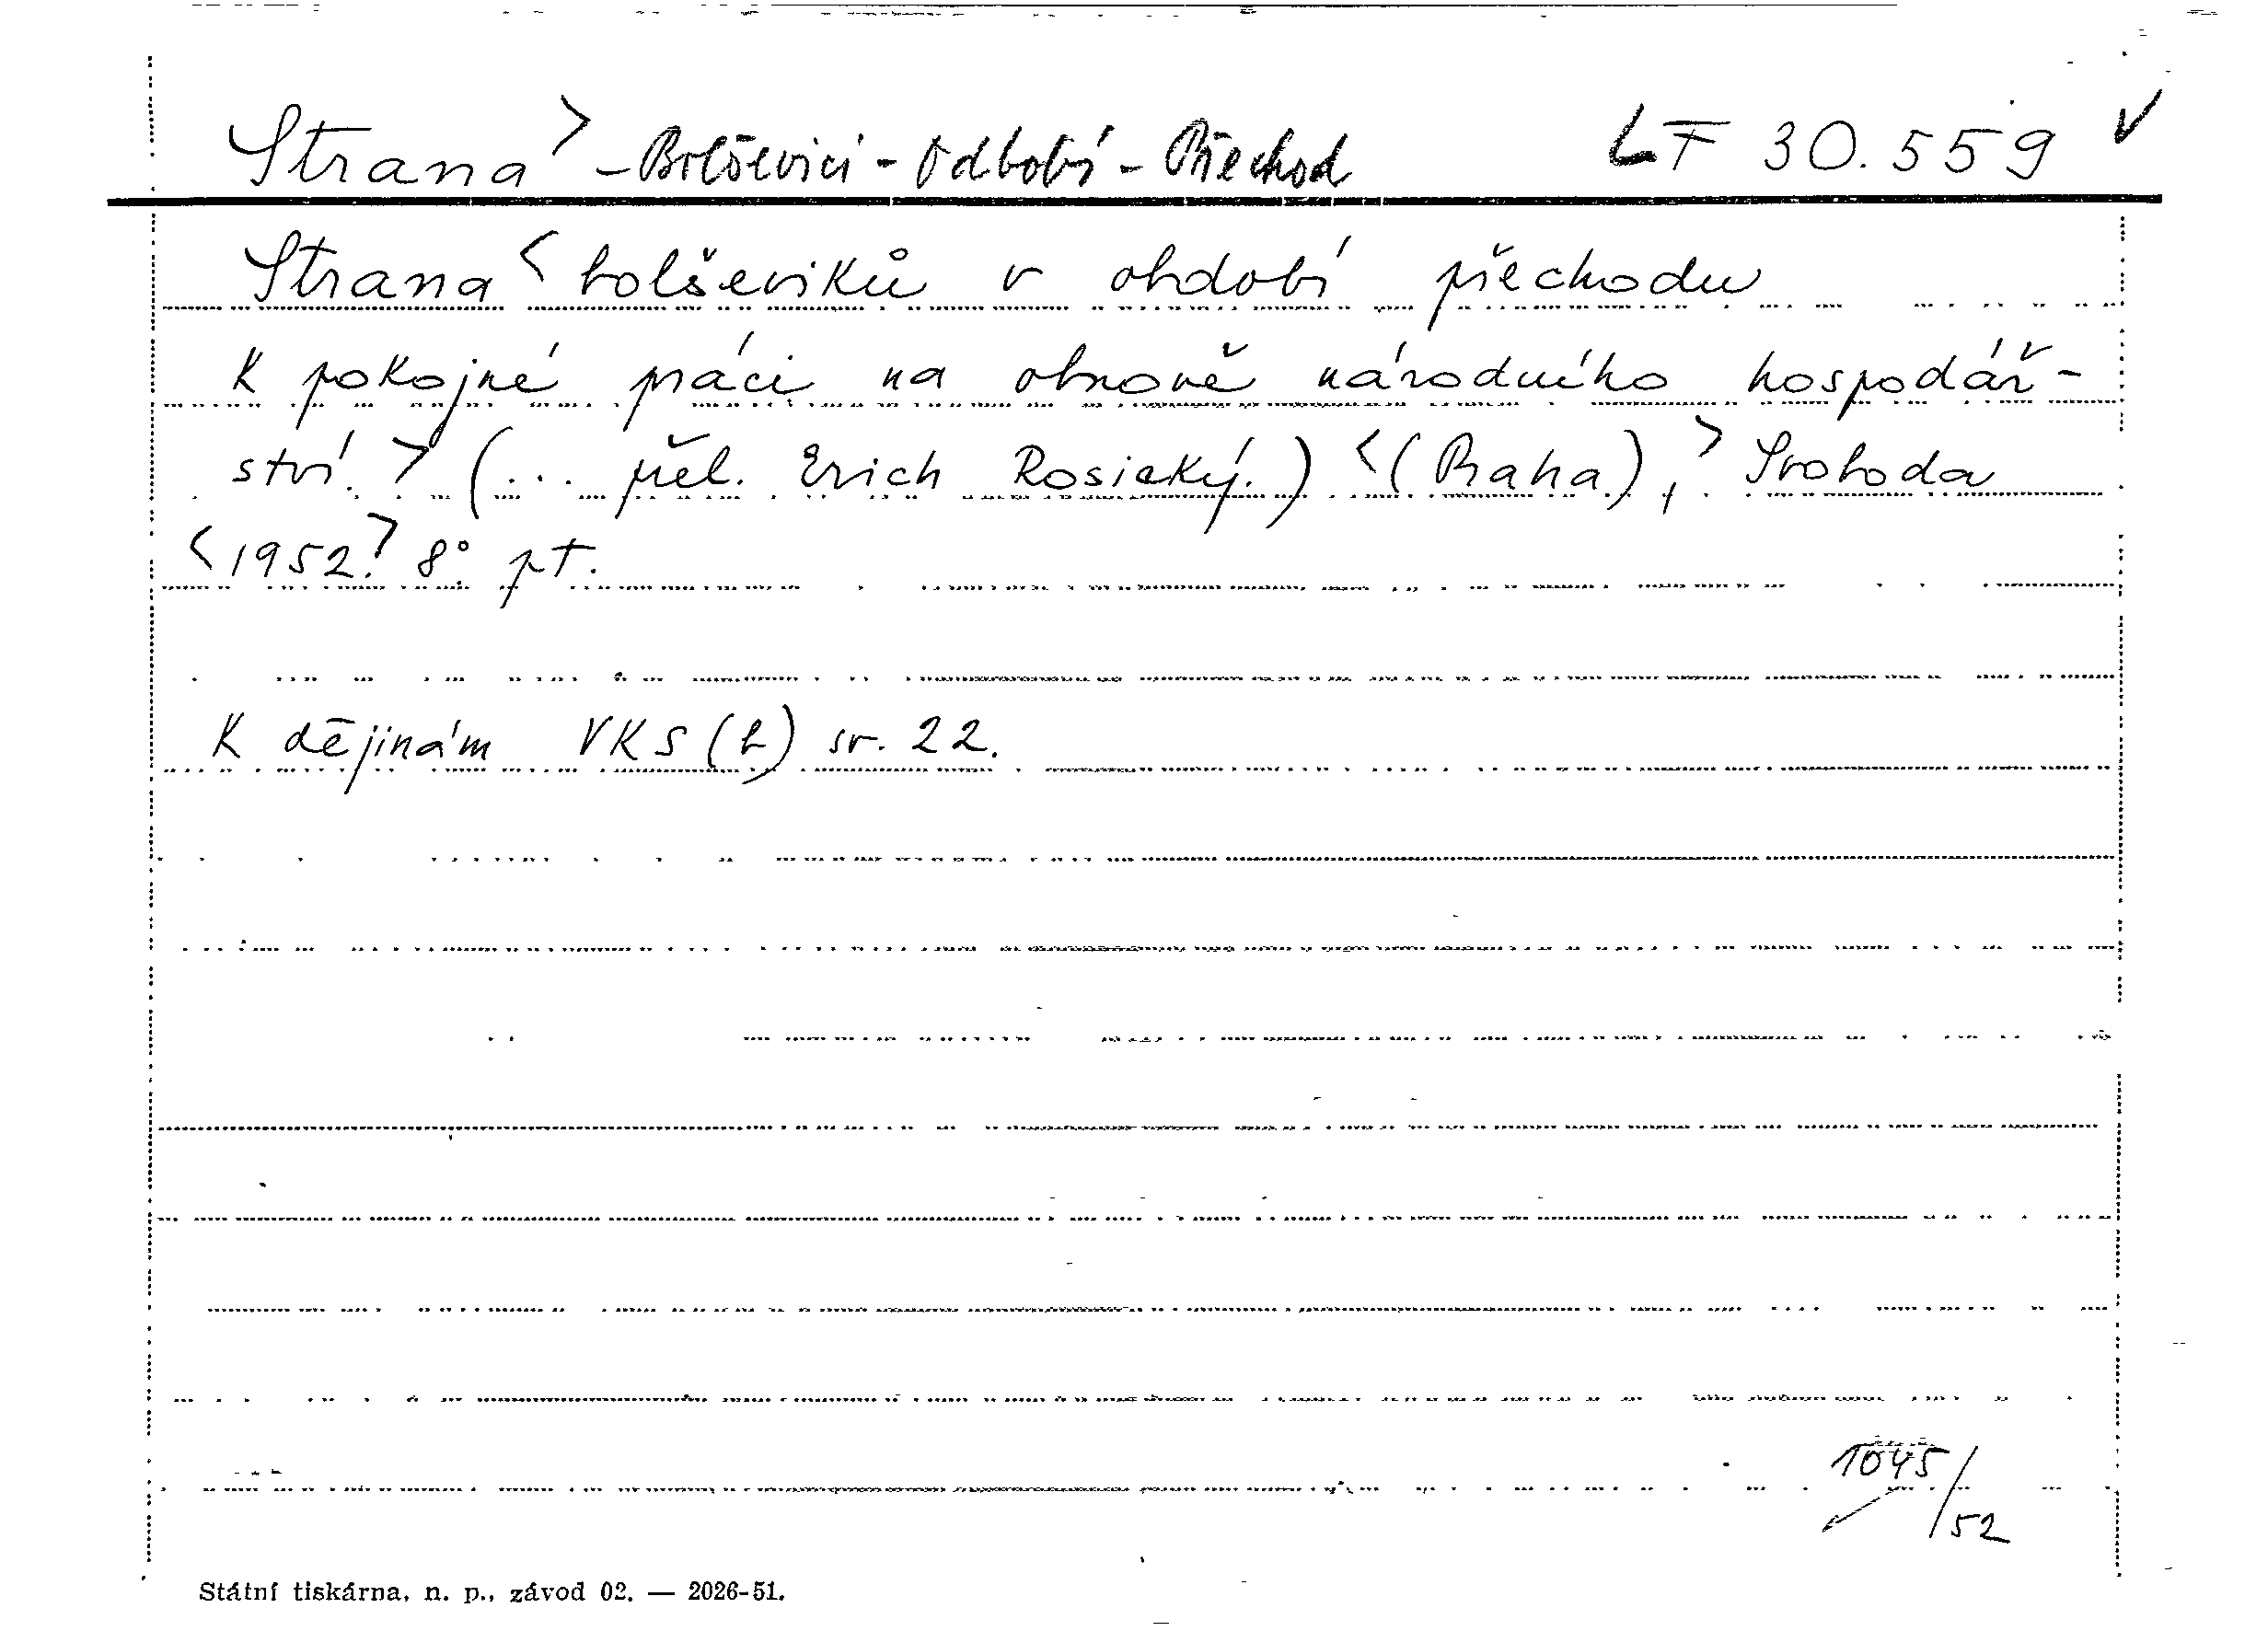 Strana> - Bolševici - Odbobí - Přechod LF 30.559 ✓
Strana < bolševiků v období přechodu
K pokojné práci na obnově národního hospodář-
ství. > (... přel. Erich Rosický.) <(Praha), > Svoboda
<1952.> 8° pt.
K dějinám VKS(b) sv. 22.
1045/52
Státní tiskárna, n. p., závod 02. — 2026-51.